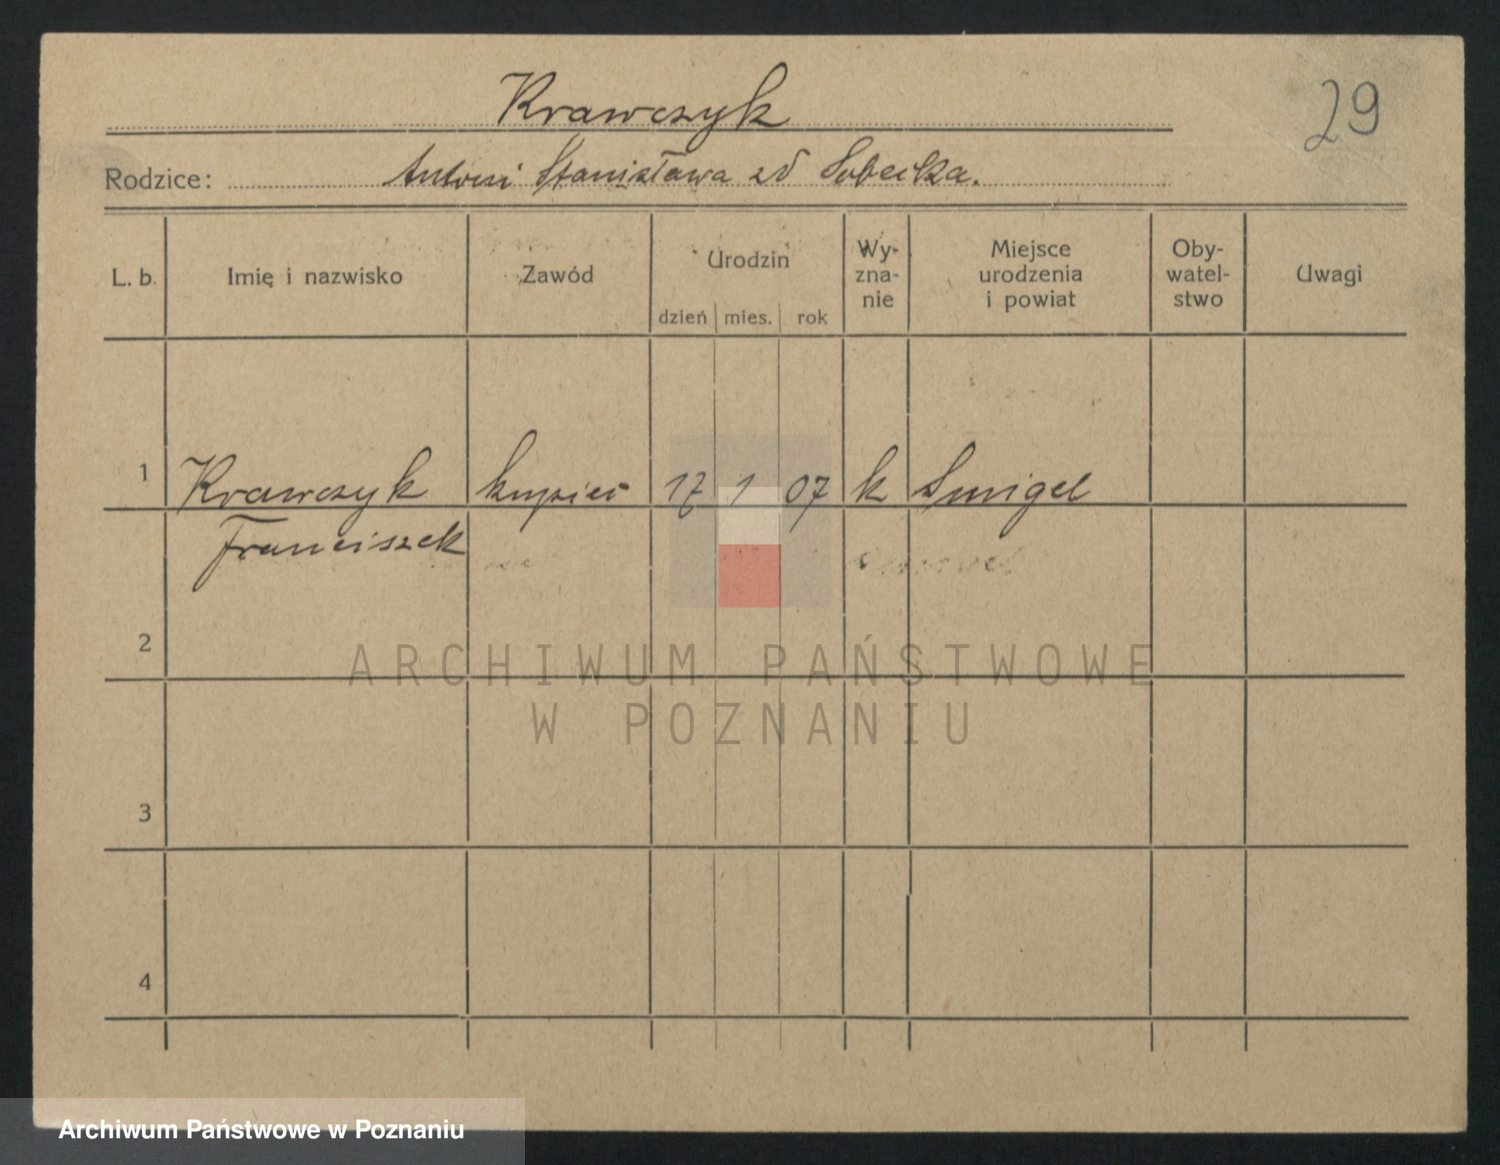 Krawczyk
29
Rodzice: Antoni Stanisława zd Sobecka.
L. b. Imię i nazwisko Zawód Urodzin dzień mies. rok Wy- zna- nie Miejsce urodzenia i powiat Oby- watel- stwo Uwagi
1 Krawczyk kupiec 17 1 07 k Smigel
Franciszek
2
ARCHIWUM PAŃSTWOWE
W POZNANIU
3
4
Archiwum Państwowe w Poznaniu